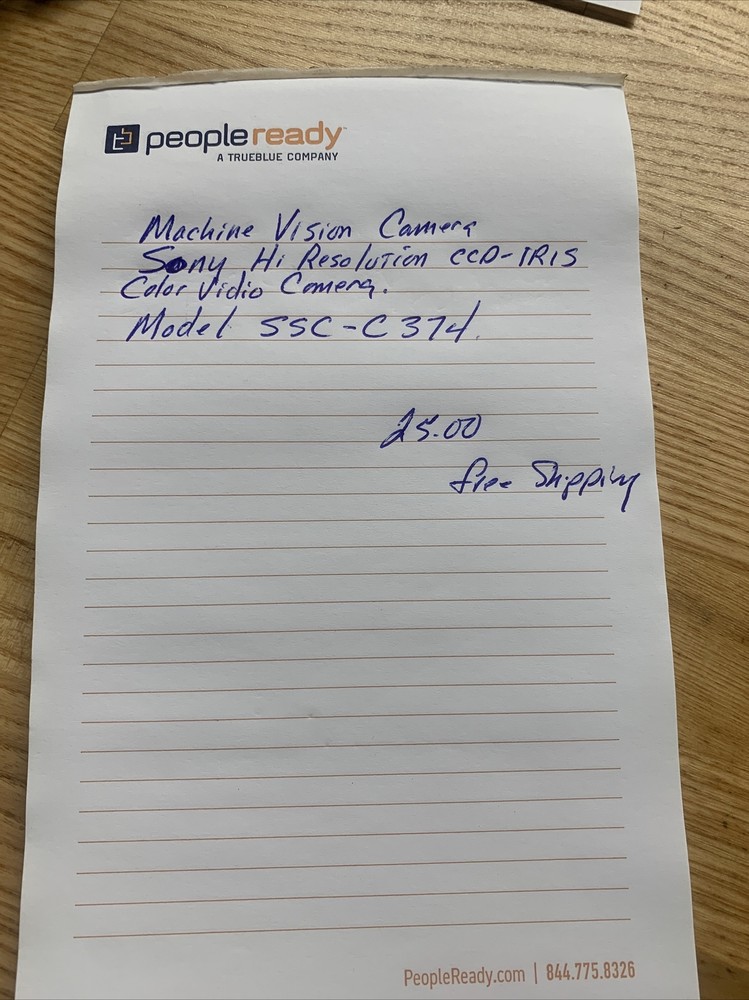 peopleready™
A TRUEBLUE COMPANY
Machine Vision Camera
Sony Hi Resolution CCD-IRIS
Color Vidio Camera.
Model SSC-C374.
25.00
free Shipping
PeopleReady.com | 844.775.8326